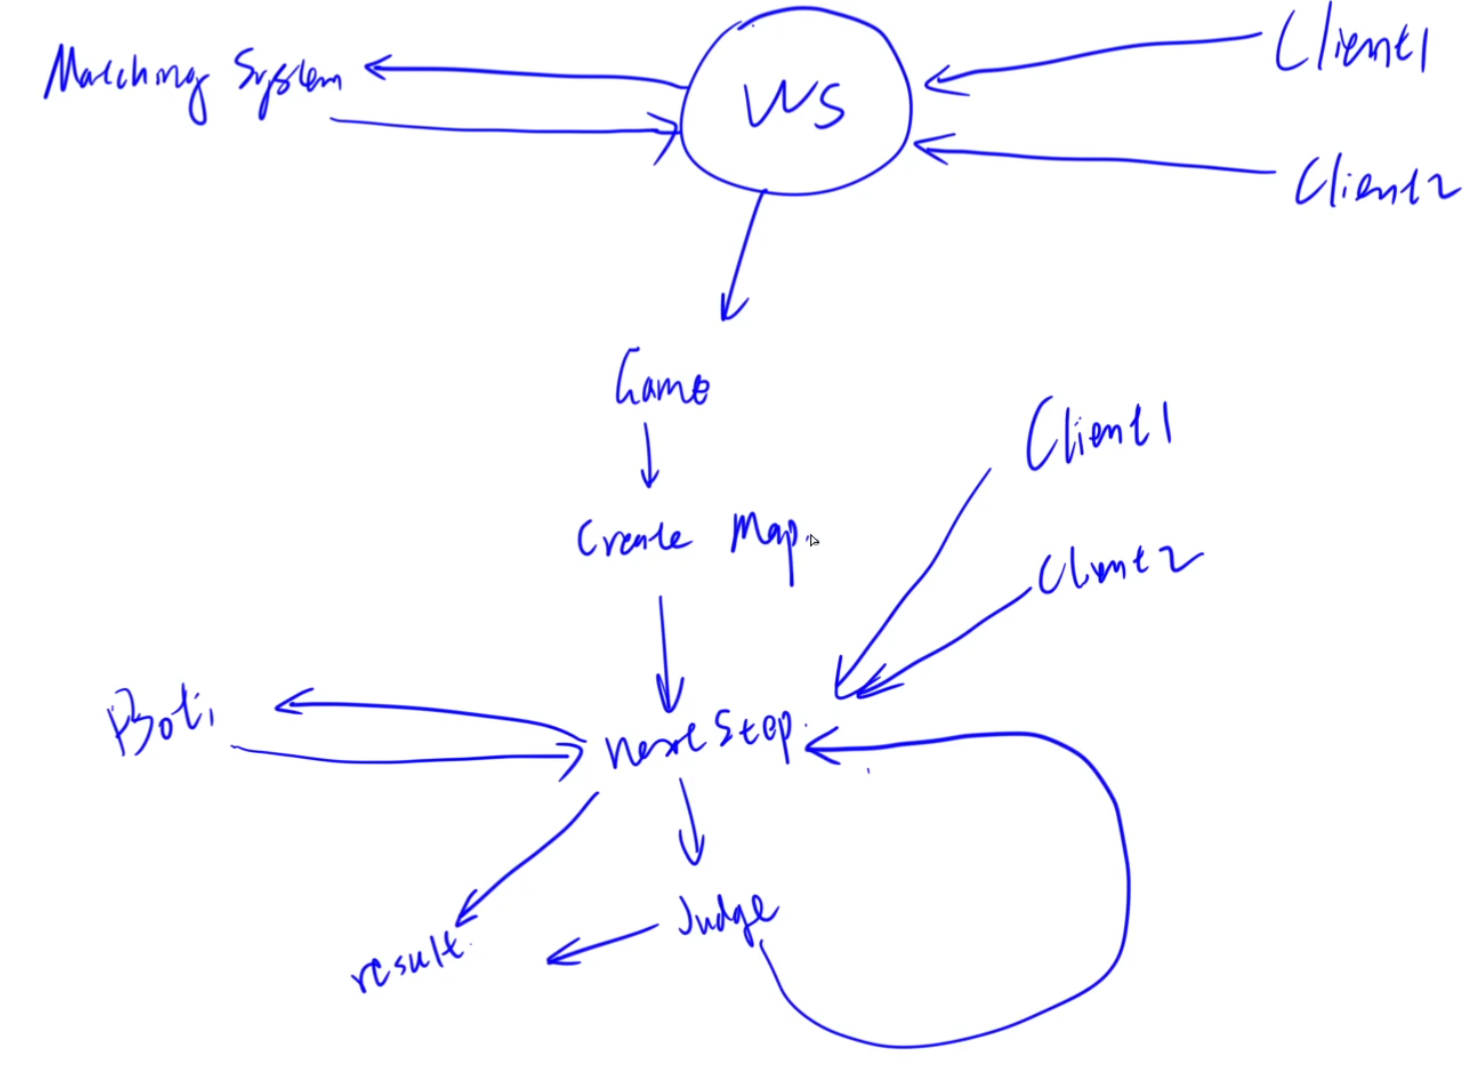 Matching System
WS
Client1
Client2
Game
Client1
Create Map
Client2
Bot
next step
Judge
result